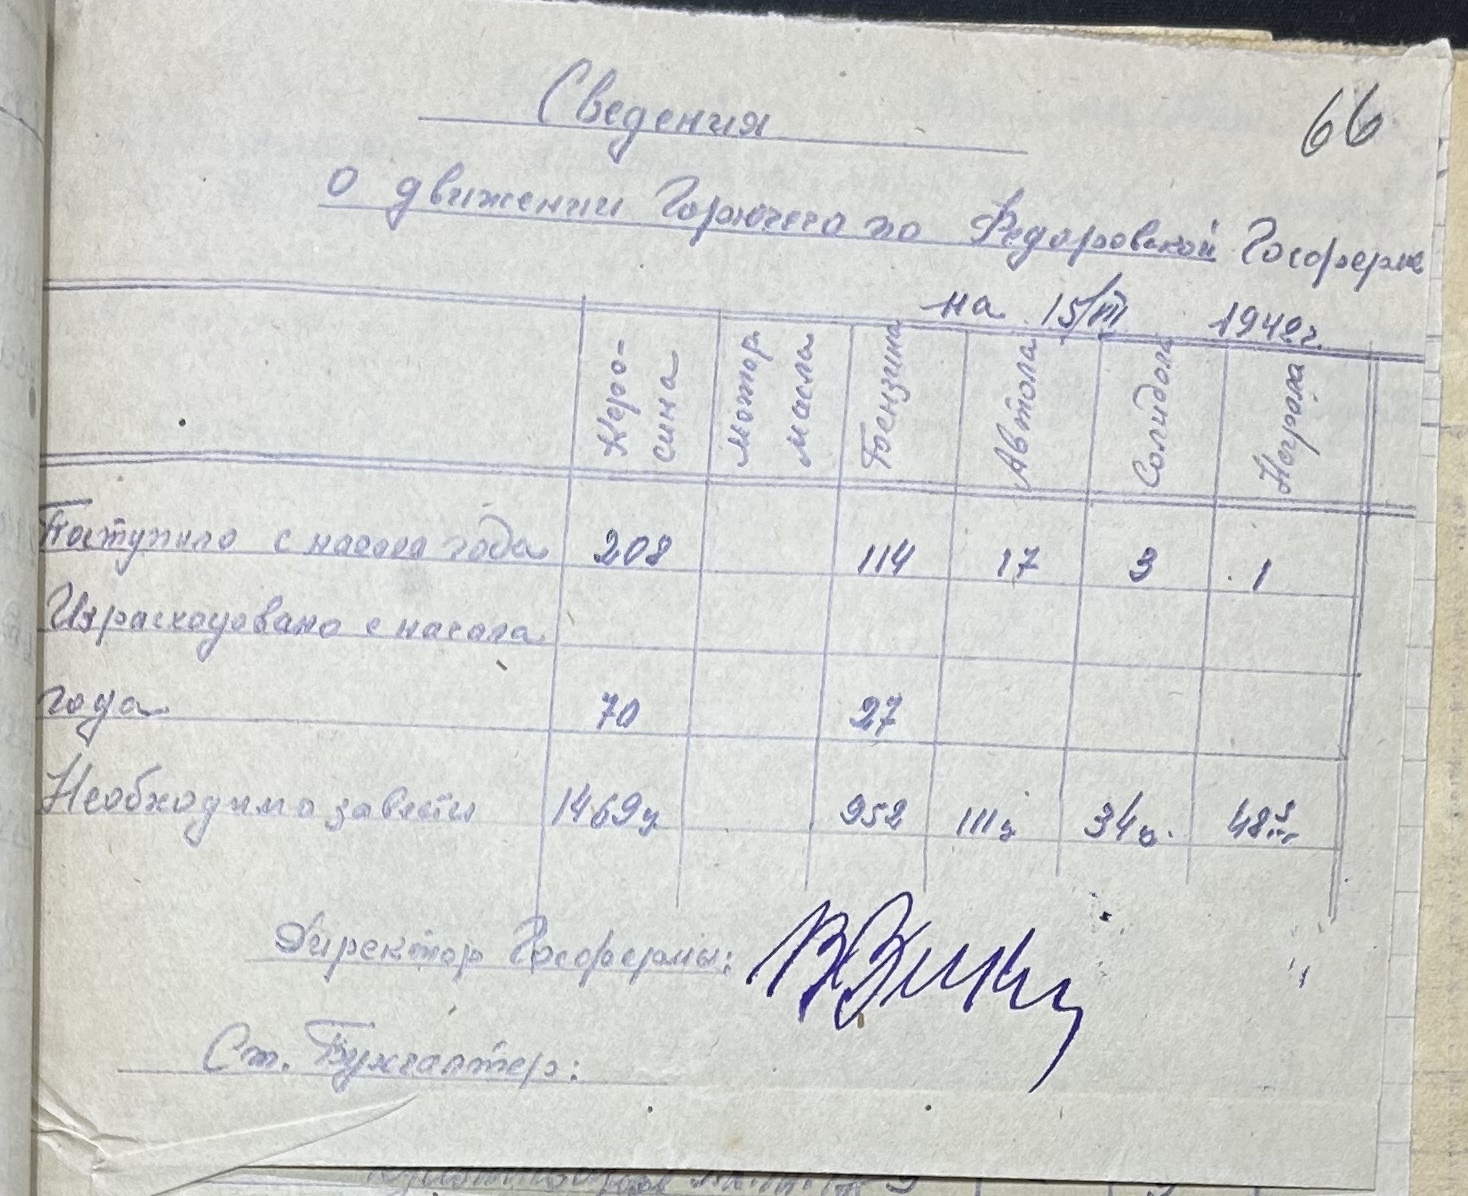 66
Сведения
о движении Горючего по Федоровской Госферме
на 15/III 1942г.
Керо-
сина
мотор.
масла
Бензина
Автола
Солидола
Нигрола
Поступило с начала года 208 114 17 3 1
Израсходовано с начала
года 70 27
Необходимо завести 1469ц 952 111ц 34ц. 48
Директор Госфермы:
Ст. Бухгалтер: